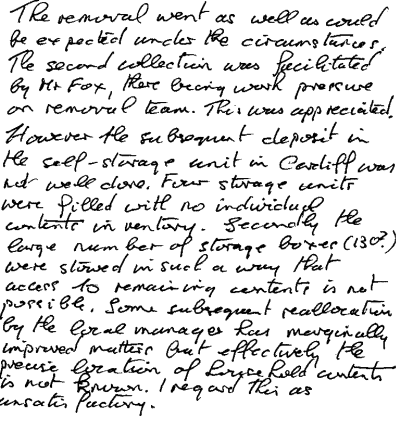 The removal went as well as could
be expected under the circumstances.
The second collection was facilitated
by Mr Fox, there being work pressure
on removal team. This was appreciated.
However the subsequent deposit in
the self-storage unit in Cardiff was
not well done. Four storage units
were filled with no individual
contents inventory. Secondly the
large number of storage boxes (130?)
were stowed in such a way that
access to remaining contents is not
possible. Some subsequent reallocation
by the local manager has marginally
improved matters but effectively the
precise location of household contents
is not known. I regard this as
unsatisfactory.